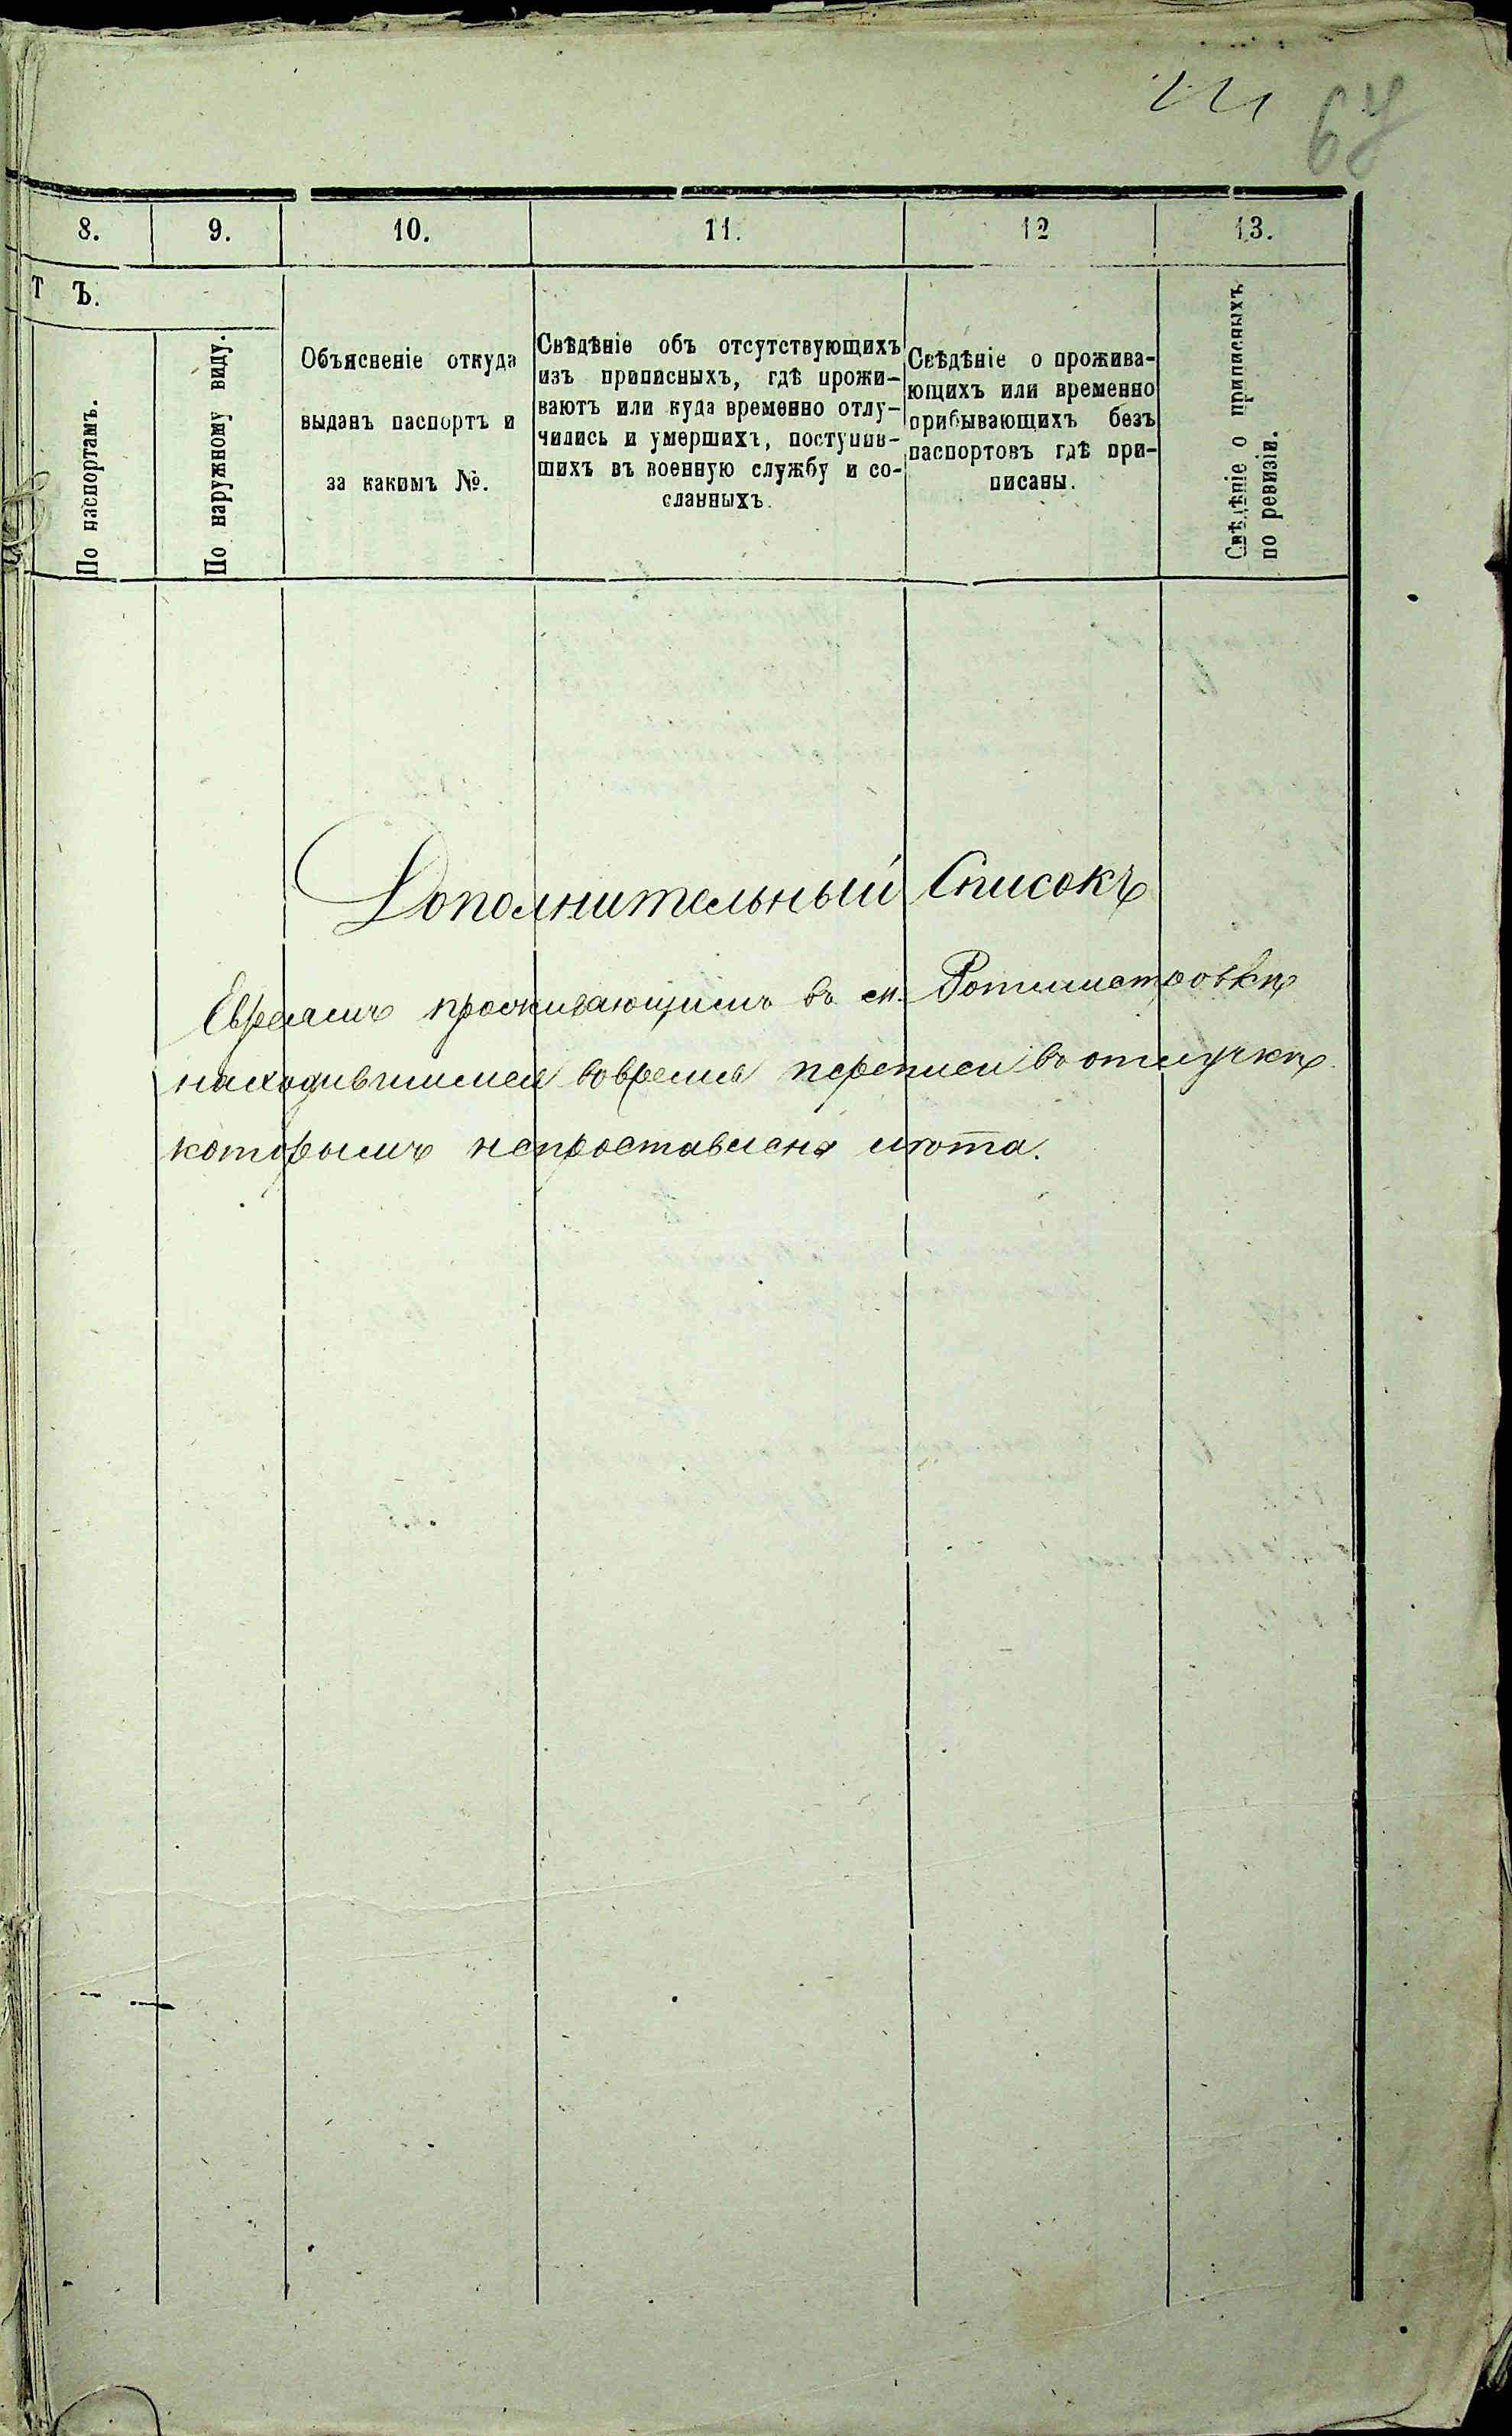 67
8. 9. 10. 11. 12 13.
т ъ.
По паспортамъ.
По наружному виду.
Объясненіе откуда
выданъ паспортъ и
за какимъ №.
Свѣдѣніе объ отсутствующихъ
изъ приписныхъ, гдѣ прожи-
ваютъ или куда временно отлу-
чились и умершихъ, поступив-
шихъ въ военную службу и со-
сланныхъ.
Свѣдѣніе о прожива-
ющихъ или временно
прибывающихъ безъ
паспортовъ гдѣ при-
писаны.
Свѣдѣніе о приписныхъ
по ревизіи.
Дополнительный Списокъ
Евреямъ проживающимъ въ м. Ротмистровкѣ
находившимся вовремя переписи въ отлучкѣ
которымъ непроставлена лѣта.